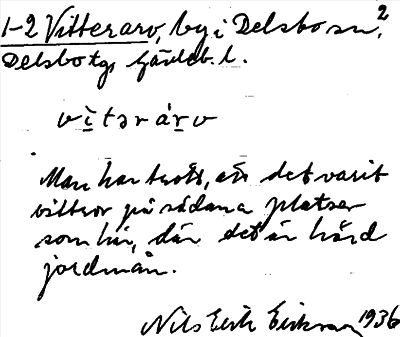 1-2 Vitterarv, by i Delsbo sn,²
Delsbo tg Gävleb. l.
vìtərárv
Man har trott, att det varit
vittror på sådana platser
som här, där det är hård
jordmån.
Nils Erik Eriksson 1936